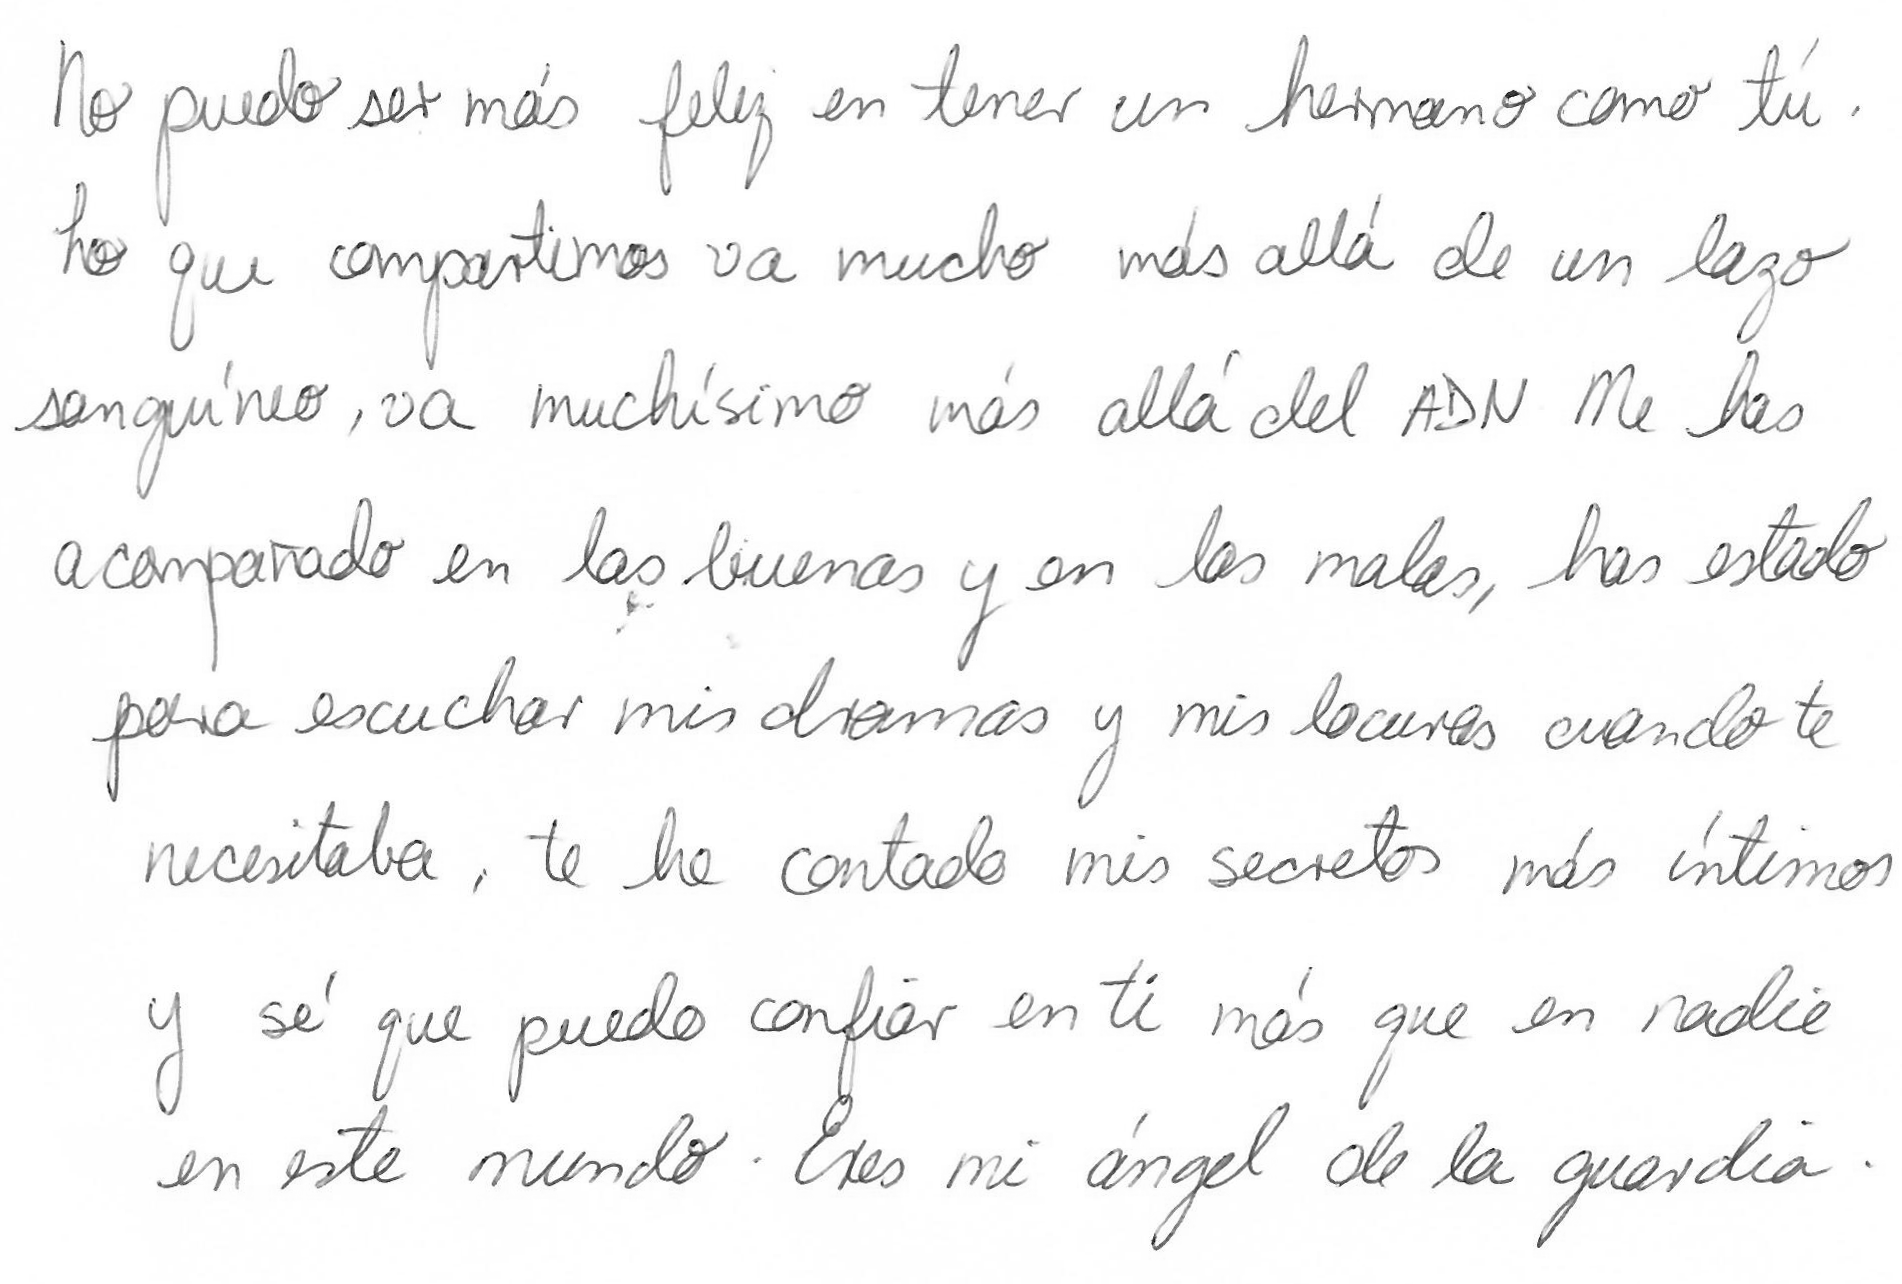 No puedo ser más feliz en tener un hermano como tú.
Lo que compartimos va mucho más allá de un lazo
sanguíneo, va muchísimo más allá del ADN Me has
acompañado en las buenas y en las malas, has estado
para escuchar mis dramas y mis locuras cuando te
necesitaba, te he contado mis secretos más íntimos
y sé que puedo confiar en ti más que en nadie
en este mundo. Eres mi ángel de la guardia.